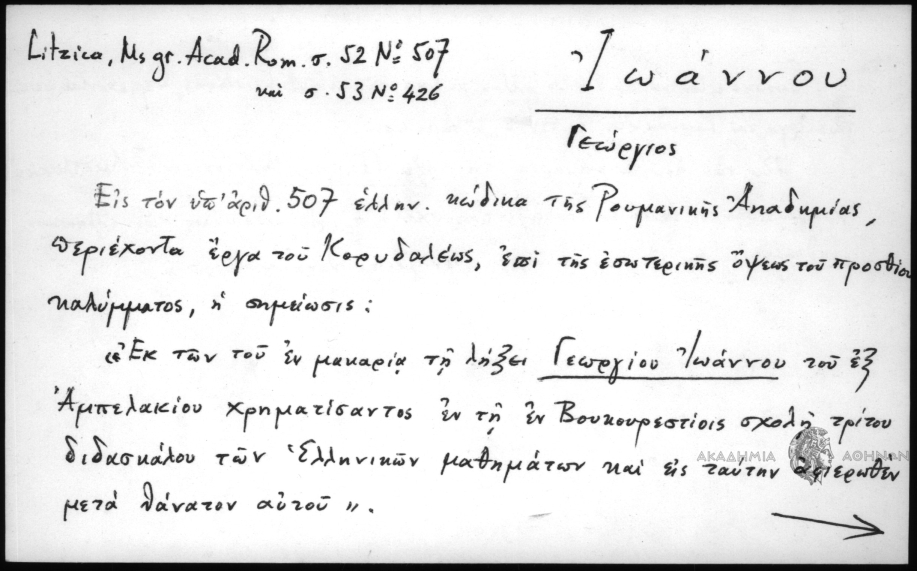 Litzica, Ms gr. Acad. Rom. σ. 52 Nº 507
καὶ σ. 53 Nº 426
Ἰωάννου
Γεώργιος
Εἰς τὸν ὑπ' ἀριθ. 507 ἑλλην. κώδικα τῆς Ρουμανικῆς Ἀκαδημίας,
περιέχοντα ἔργα τοῦ Κορυδαλέως, ἐπὶ τῆς ἐσωτερικῆς ὄψεως τοῦ προσθίου
καλύμματος, ἡ σημείωσις:
«Ἐκ τῶν τοῦ ἐν μακαρίᾳ τῇ λήξει Γεωργίου Ἰωάννου τοῦ ἐξ
Ἀμπελακίου χρηματίσαντος ἐν τῇ ἐν Βουκουρεστίοις σχολῇ τρίτου
διδασκάλου τῶν Ἑλληνικῶν μαθημάτων καὶ εἰς ταύτην ἀφιερωθὲν
μετὰ θάνατον αὐτοῦ».
ΑΚΑΔΗΜΙΑ ΑΘΗΝΩΝ